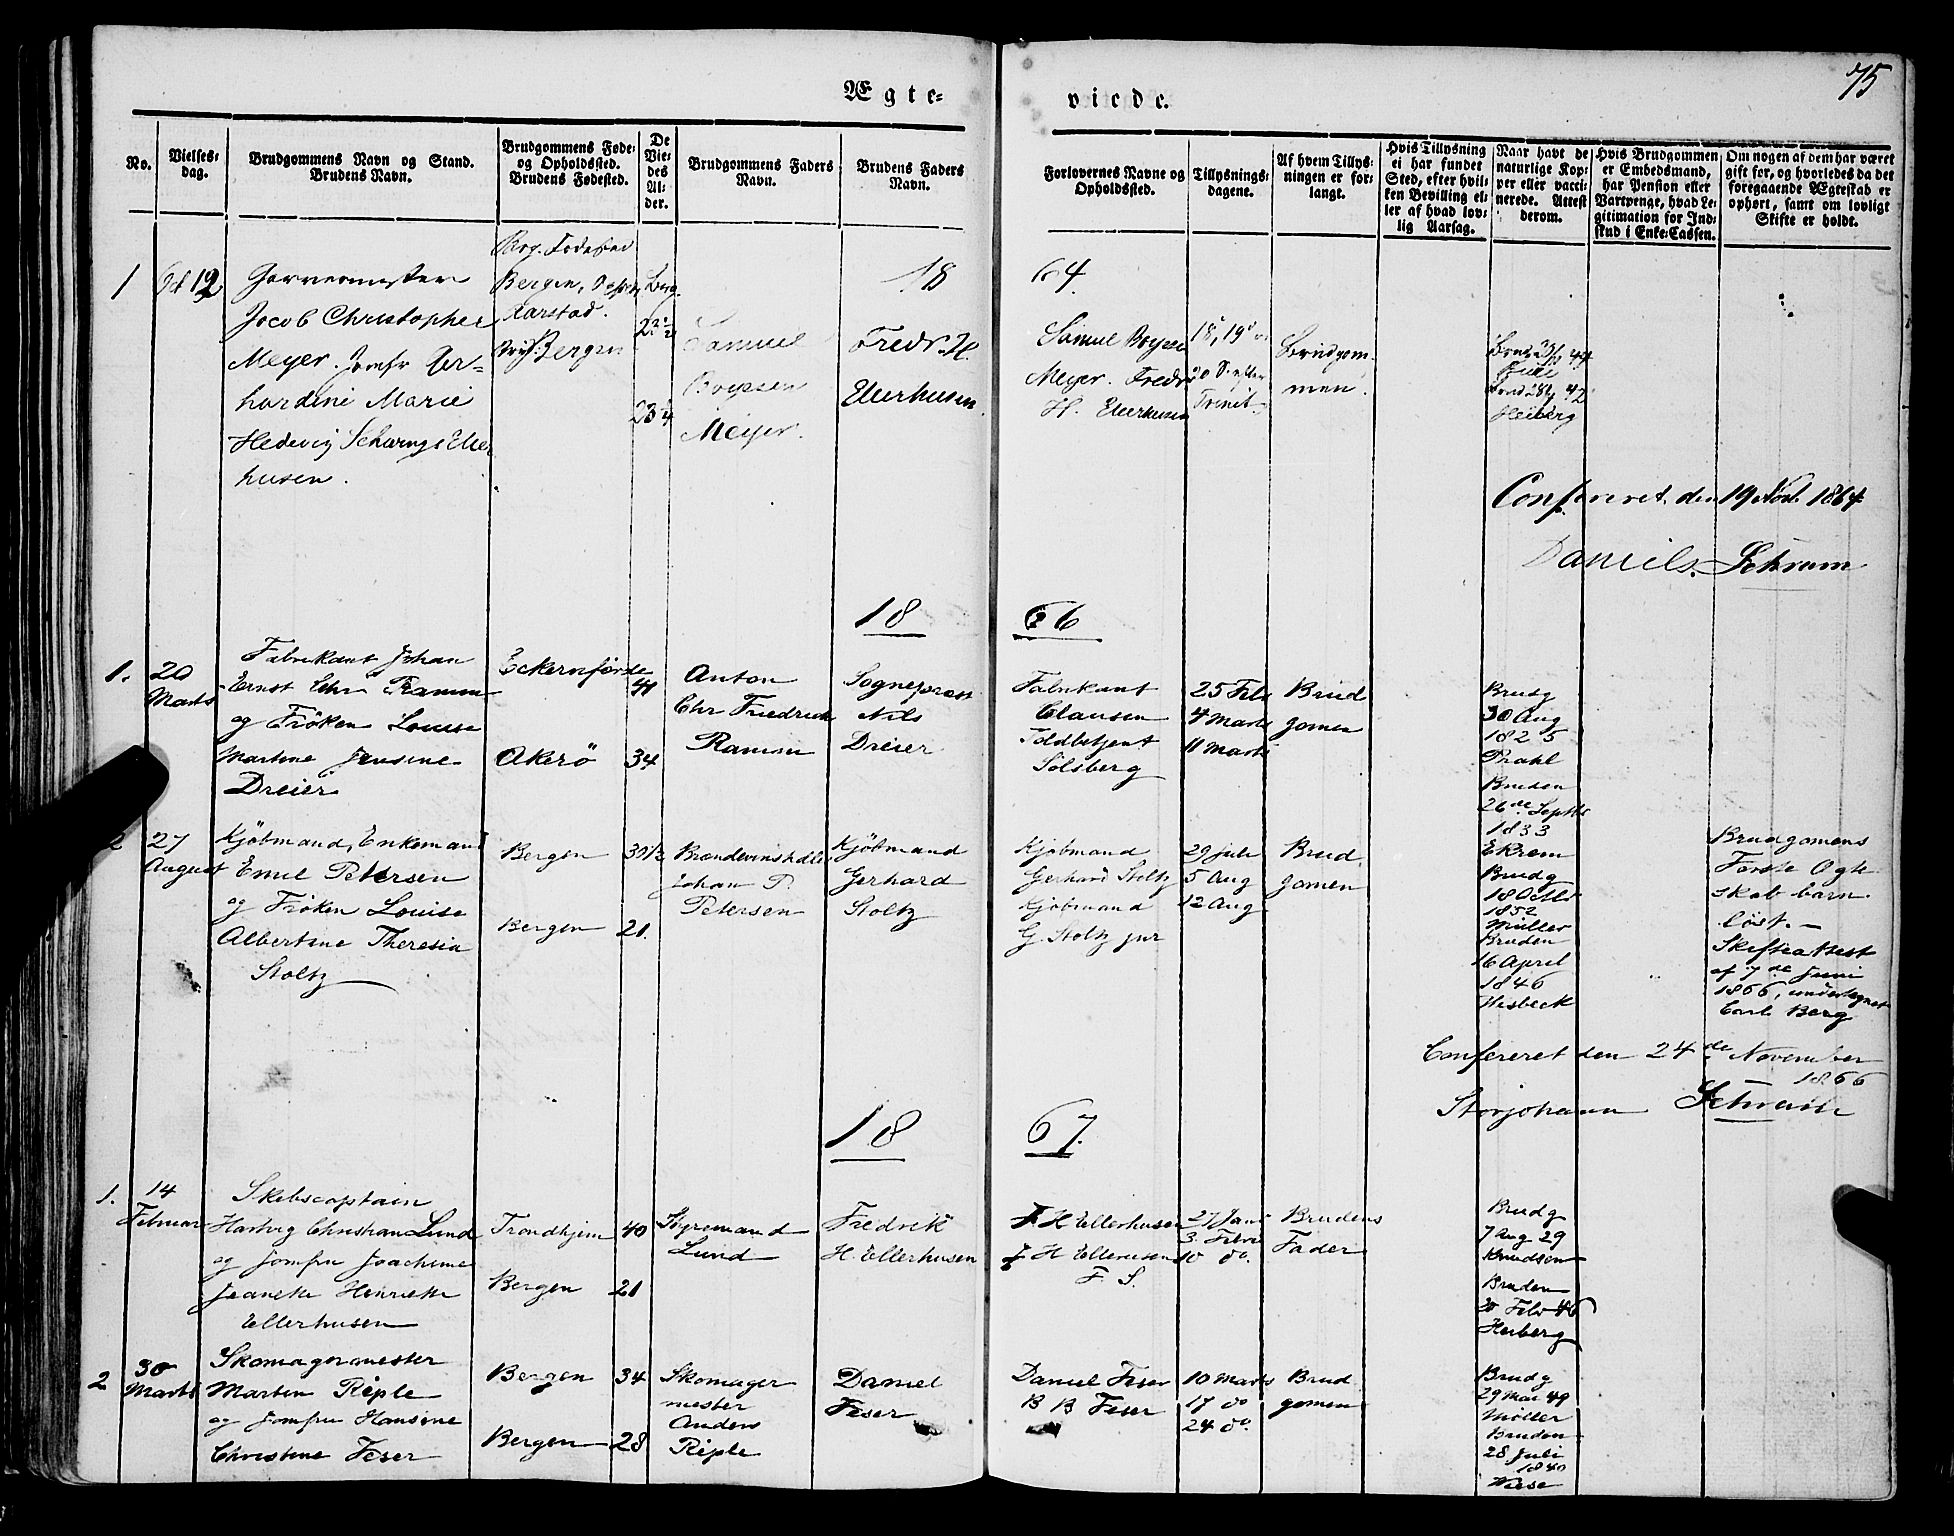 75
Ægte-
viede.
No.
Vielses-
dag.
Brudgommens Navn og Stand.
Brudens Navn.
Brudgommens Føde-
og Opholdssted.
Brudens Fødested.
De
Vie-
des
Al-
der.
Brudgommens Faders
Navn.
Brudens Faders
Navn.
Forlovernes Navne og
Opholdssted.
Tillysnings-
dagene.
Af hvem Tillys-
ningen er for-
langt.
Hvis Tillysning
ei har fundet
Sted, efter hvil-
ken Bevilling el-
ler af hvad lov-
lig Aarsag.
Naar havt de
naturlige Kop-
per eller vacci-
nerede. Attest
derom.
Hvis Brudgommen
er Embedsmand,
har Pension eller
Vartpenge, hvad Le-
gitimation for Ind-
skud i Enke-Cassen.
Om nogen af dem har været
gift før, og hvorledes da det
foregaaende Ægteskab er
ophørt, samt om lovligt
Skifte er holdt.
18
64.
1
12
Jacob Christopher
Meyer. Jomfr
hardine Marie
Hedevig
husen.
Bergen,
Aarstad.
Bergen
Samuel
Boysen
Meyer.
Fredr. H.
Ellerhusen
Samuel Boysen
Meyer. Fredr
H. Ellerhusen
Trinit.
Brudgom-
men.
Heiberg
Confereret den 19 Nov. 1864
Daniels. Schram
18
66
1.
20
Marts
Fabrikant Johan
Ernst Chr Ramm
og Frøken Louise
Martine Jensine
Dreier
Eckernförde
41
Akerö
34
Anton
Chr Friedrich
Ramm
Sogneprest
Nils
Dreier
Fabrikant
Clausen
Toldbetjent
Solberg
25 Febr
4 Marts
11 Marts
Brud
gomen
Brudg
30 Aug
1825
Prahl
Bruden
26de Septbr
1833
Ekrem
2
27
August
Kjöbmand, Enkemand
Emil Petersen
og Frøken Louise
Albertine Theresia
Stoltz
Bergen
30 1/2
Bergen
21.
Brændevinshdler
Johan P.
Petersen
Kjöbmand
Gerhard
Stoltz
Kjöbmand
Gerhard Stoltz
Kjöbmand
G. Stoltz jun
29 Juli
5 Aug
12 Aug
Brud
gomen
Brudg
18 Octbr
1832
Müller
Bruden
16 April
1846
Wisbeck
Brudgomens
Første Ægte
skab barn
löst.-
Skifteattest
af 7de Juni
1866, undertegnet
Carl Berg
Confereret den 24de November
1866
Storjohann Schram
18
67.
1.
14
Februar
Skibscaptain
Hartvig Christian Lund
og Jomfru Joachime
Jeanette Henriette
Ellerhusen
Trondhjem
40
Bergen
21
Styremand
Lund
Fredrik
H. Ellerhusen
F H Ellerhusen
F H Ellerusen
F. S.
27 Jan
3 Febr
10 do.
Brudens
Fader
Brudg
7 Aug 29
Knudsen
Bruden
30 Febr 46
Heiberg
2
30
Marts
Skomagermester
Marten Riple
og Jomfru Hansine
Christine Feser
Bergen
34
Bergen
28
Skomager
mester
Anders
Riple
Daniel
Feser
Daniel Feser
B B Feser
10 Marts
17 do
24 do.
Brud
gomen
Brudg
29 Mai 49
Möller
Bruden
28 Juli
1840
Wiese